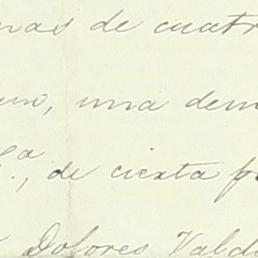 nas de cuatr
una dem
de cierta f
Dolores Vald